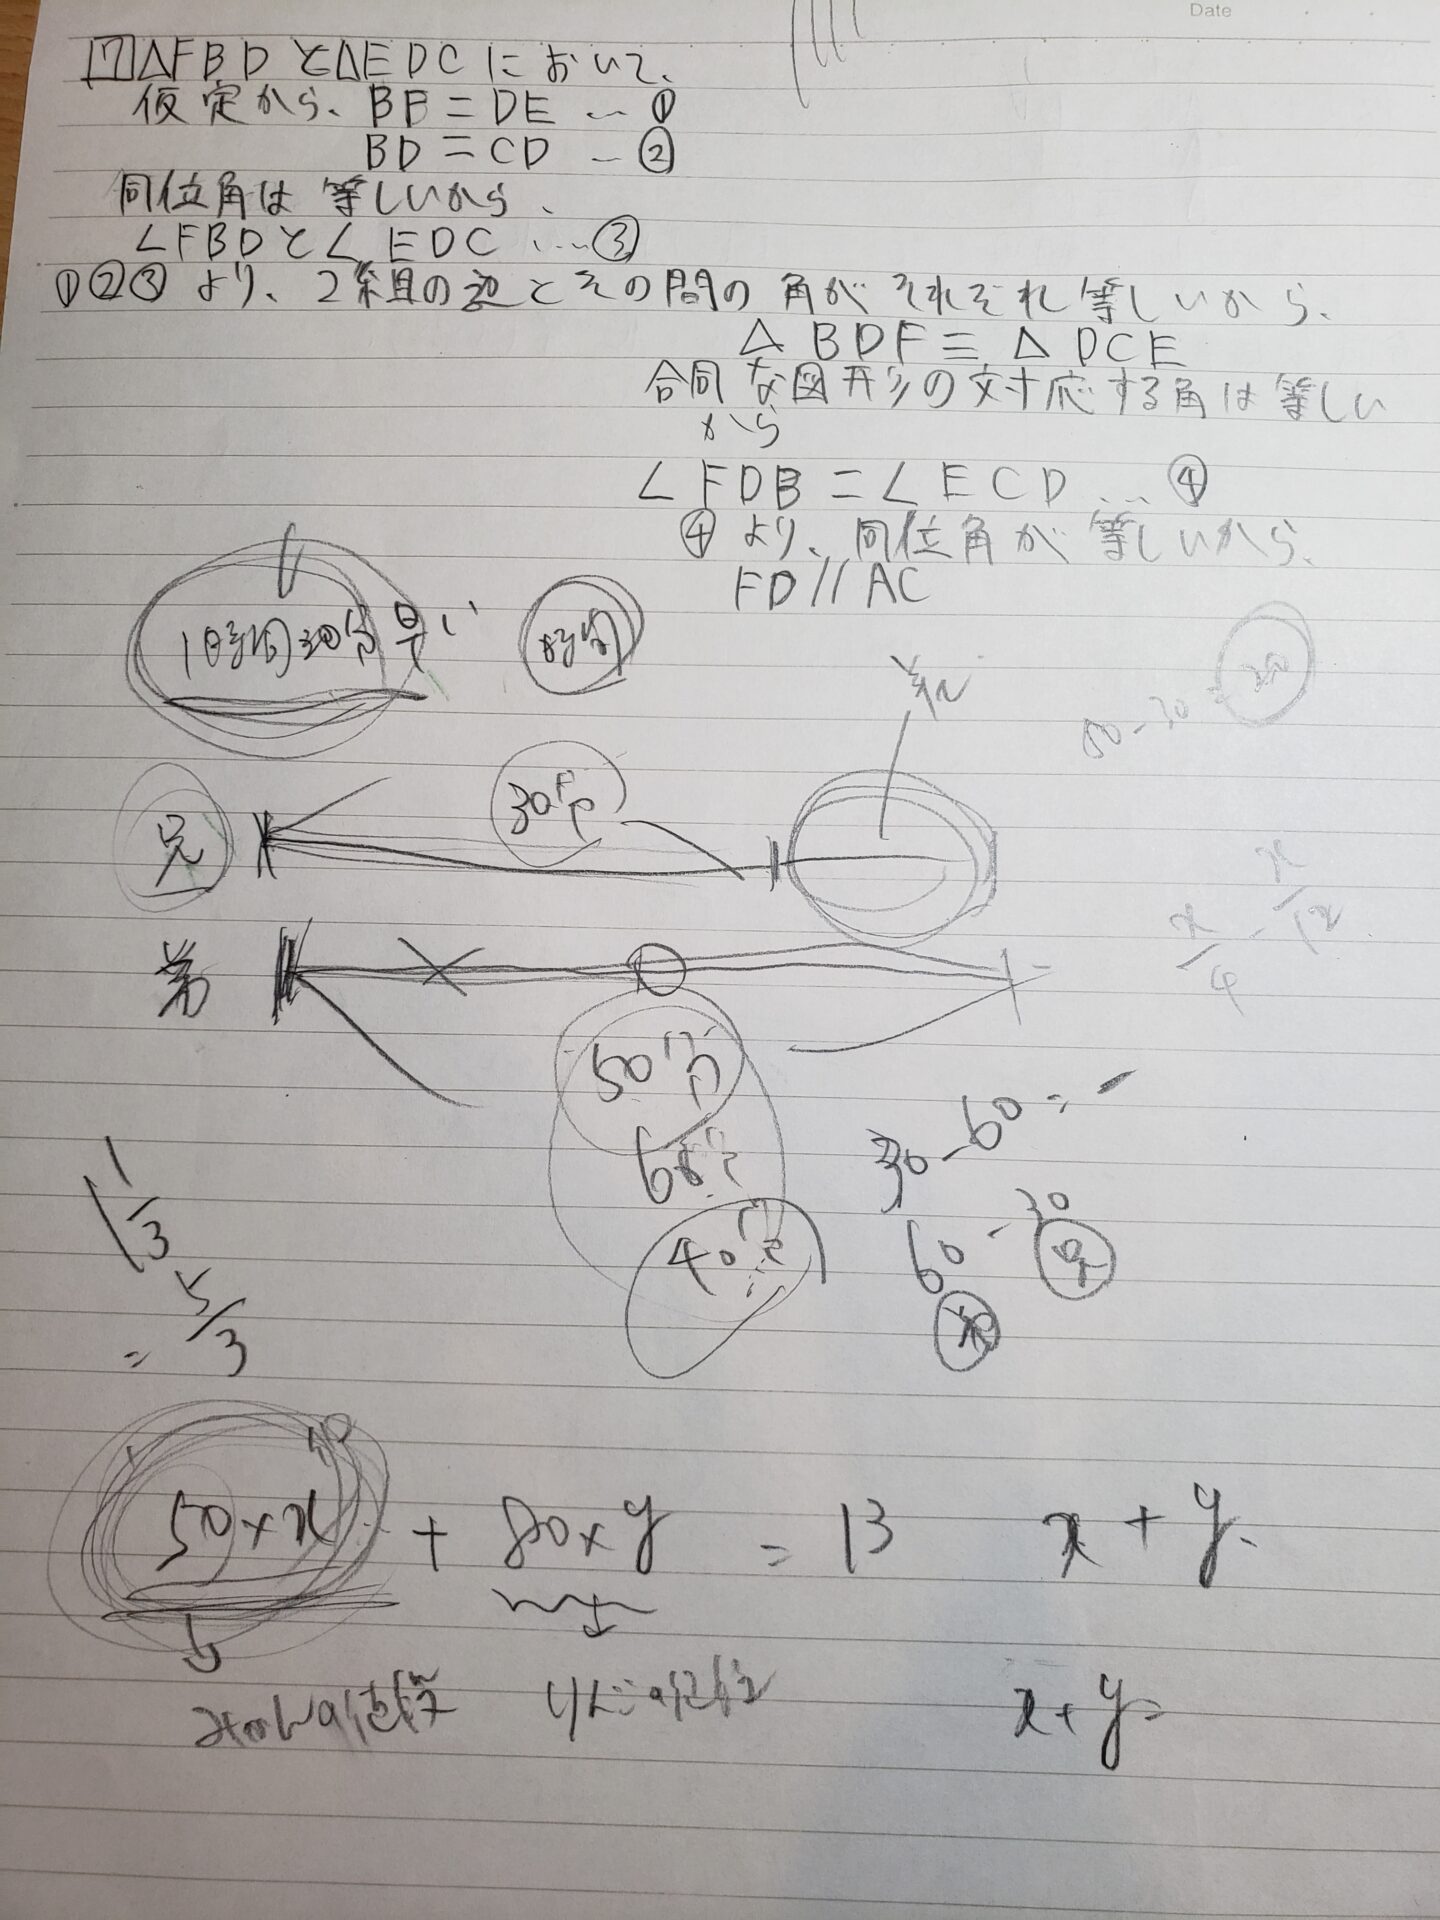 Date
7 △FBDと△EDCにおいて、
仮定から、BF=DE … ①
BD=CD … ②
同位角は等しいから、
∠FBDと∠EDC … ③
①②③より、2組の辺とその間の角がそれぞれ等しいから、
△BDF≡△DCE
合同な図形の対応する角は等しい
から
∠FDB=∠ECD … ④
④より、同位角が等しいから、
FD//AC
1時間30分早い
時間
50-30=20
兄
30分
x/4 - x/12
弟
50分
60分
40分
30-60=-
60-30
1 1/3
= 5/3
50×x + 80×y = 13
x+y
みかんの代金
りんごの代金
x+y=